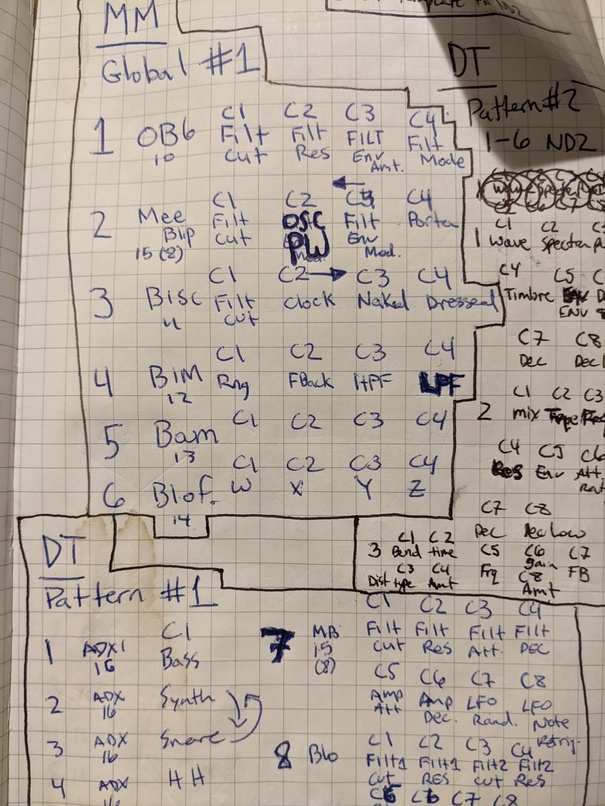 MM
Global #1
C1 C2 C3 C4
1 OB6 Filt Filt FILT Filt
10 Cut Res Env Amt. Mode
C1 C2 C3 C4
2 Mee Filt OSC Filt Porta
Blip Cut PW Env
15 (8) Mod.
C1 C2 C3 C4
3 Bisc Filt Clock Naked Dressed
11 Cut
C1 C2 C3 C4
4 BIM Rng FBack HPF LPF
12
5 Bam C1 C2 C3 C4
13
C1 C2 C3 C4
6 Blof. W X Y Z
14
DT
Pattern #2
1-6 ND2
C1 C2
1 Wave Spectra
C4 C5
Timbre ENV
C7 C8
Dec Decl
C1 C2 C3
2 mix
C4 C5 C6
Res Env Att.
C7 C8
Dec Dec Low
C1 C2 C5 C6 C7
3 Bend time Frq Gain FB
C3 C4 C8
Dist type Amt Amt
DT
Pattern #1
C1
1 ADX1 Bass
16
2 ADX Synth
16
3 ADX Snare
16
4 ADX HH
16
C1 C2 C3 C4
7 MB Filt Filt Filt Filt
15 Cut Res Att. DEC
(8)
C5 C6 C7 C8
Amp Amp LFO LFO
Att Dec. Rand. Note
Retrig.
C1 C2 C3 C4
8 Blo Filt1 Filt1 Filt2 Filt2
Cut RES Cut Res
C5 C6 C7 C8